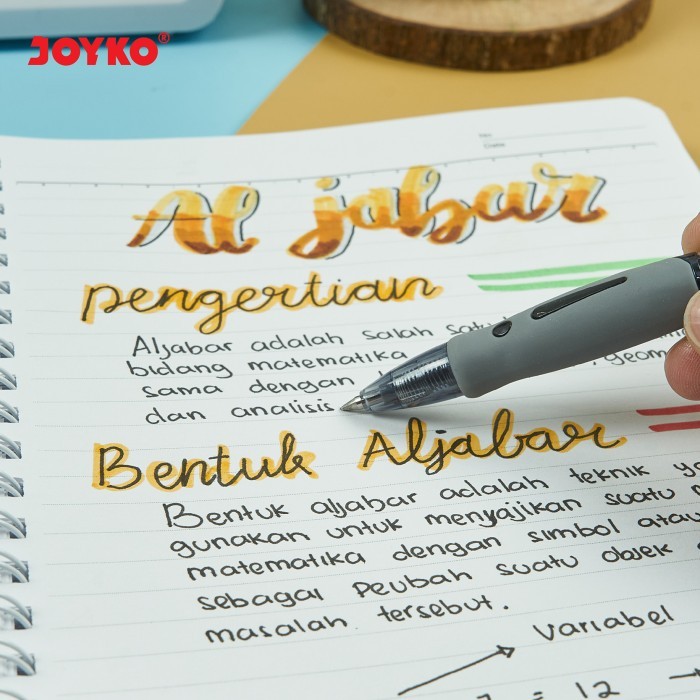 JOYKO®
No
Date
Al jabar
pengertian
Aljabar adalah salah
bidang matematika
sama dengan
dan analisis
Bentuk Aljabar
Bentuk aljabar adalah teknik
gunakan untuk menyajikan suatu
matematika dengan simbol
sebagai Peubah suatu objek
masalah tersebut.
Variabel
= 12